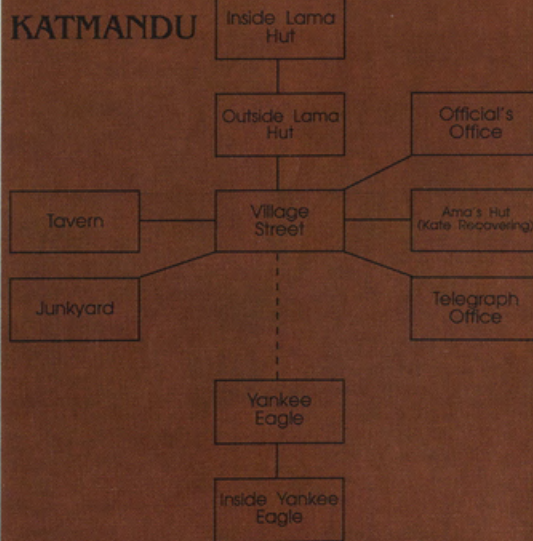 KATMANDU
Inside Lama
Hut
Outside Lama
Hut
Official's
Office
Tavern
Village
Street
Ama's Hut
(Kate Recovering)
Junkyard
Telegraph
Office
Yankee
Eagle
Inside Yankee
Eagle